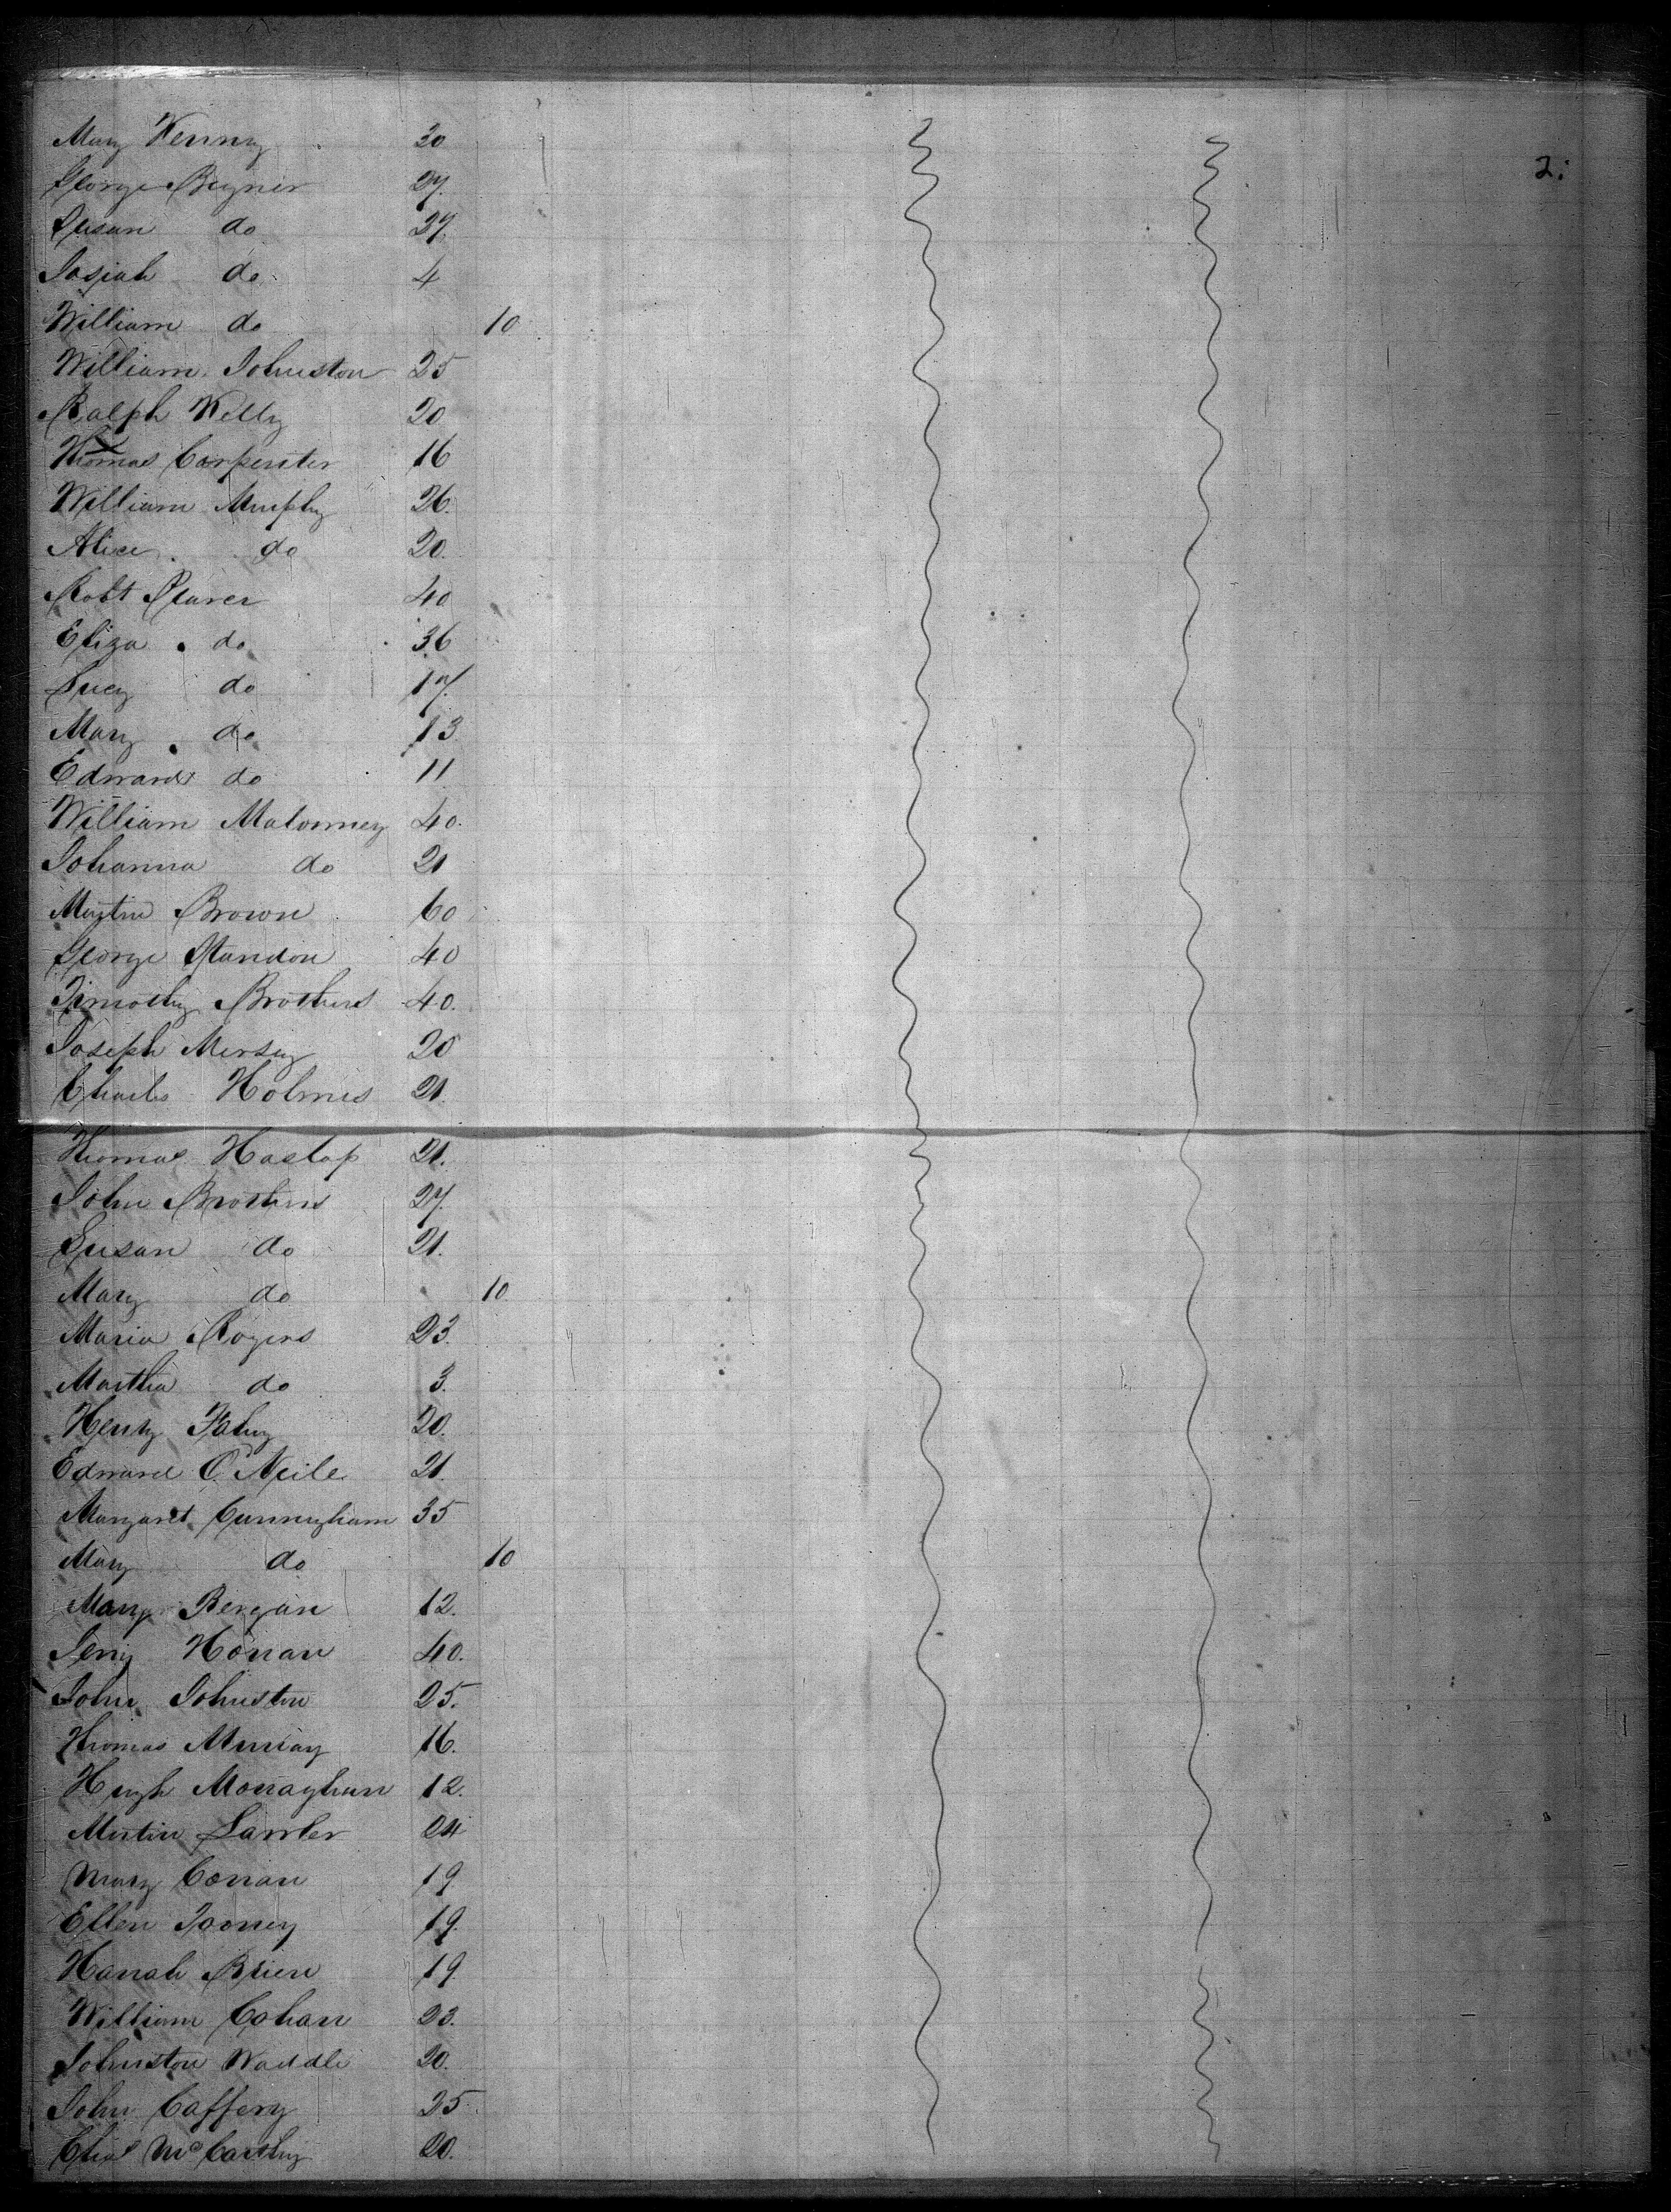 Mary Kenny 20
2.
George Bugner 27.
Susan do 27.
Josiah do 4
William do 10
William Johnston 25
Ralph Kelly 20
Thomas Carpenter 16
William Murphy 26.
Alice do 20.
Robt 40
Eliza do 36
Lucy do 17.
Mary do 13
Edward do 11
William Malonney 40.
Johanna do 21
Martin Brown 60
George Standon 40
Timothy Brothers 40.
Joseph Mersey 20
Charles Holmes 21.
Thomas Haslap 21.
John Brothers 27.
Susan do 21.
Mary do 10
Maria Rogers 23.
Martha do 3.
Henry Fahy 20.
Edward O'Neile 21.
Margaret Cunningham 35
Mary do 10
Mary Bergan 12.
Jerry Honan 40.
John Johnston 25.
Thomas Murray 16.
Hugh Monaghan 12.
Martin Lawler 24
Mary Conan 19
Ellen Tooney 19.
Hanah Brien 19
William Cohan 23.
Johnston Waddle 20.
John Caffery 25
Chas McCarthy 20.